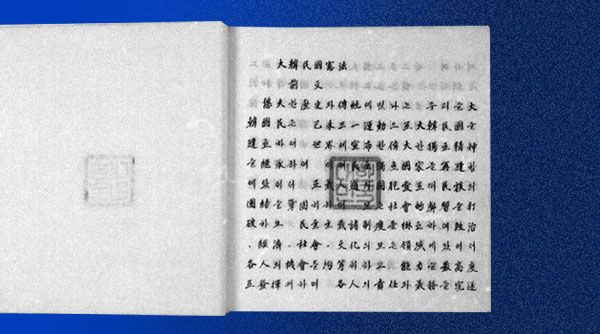 大韓民國憲法
前文
悠久한 歷史와 傳統에 빛나는 우리들 大
韓國民은 己未三一運動으로 大韓民國을
建立하여 世界에 宣布한 偉大한 獨立精神
을 繼承하여 이제 民主獨立國家를 再建함에
있어서 正義人道와 同胞愛로써 民族의
團結을 鞏固히 하며 모든 社會的弊習을 打
破하고 民主主義諸制度를 樹立하여 政治
、經濟、社會、文化의 모든 領域에 있어서
各人의 機會를 均等히 하고 能力을 最高度
로 發揮케 하며 各人의 責任과 義務를 完遂